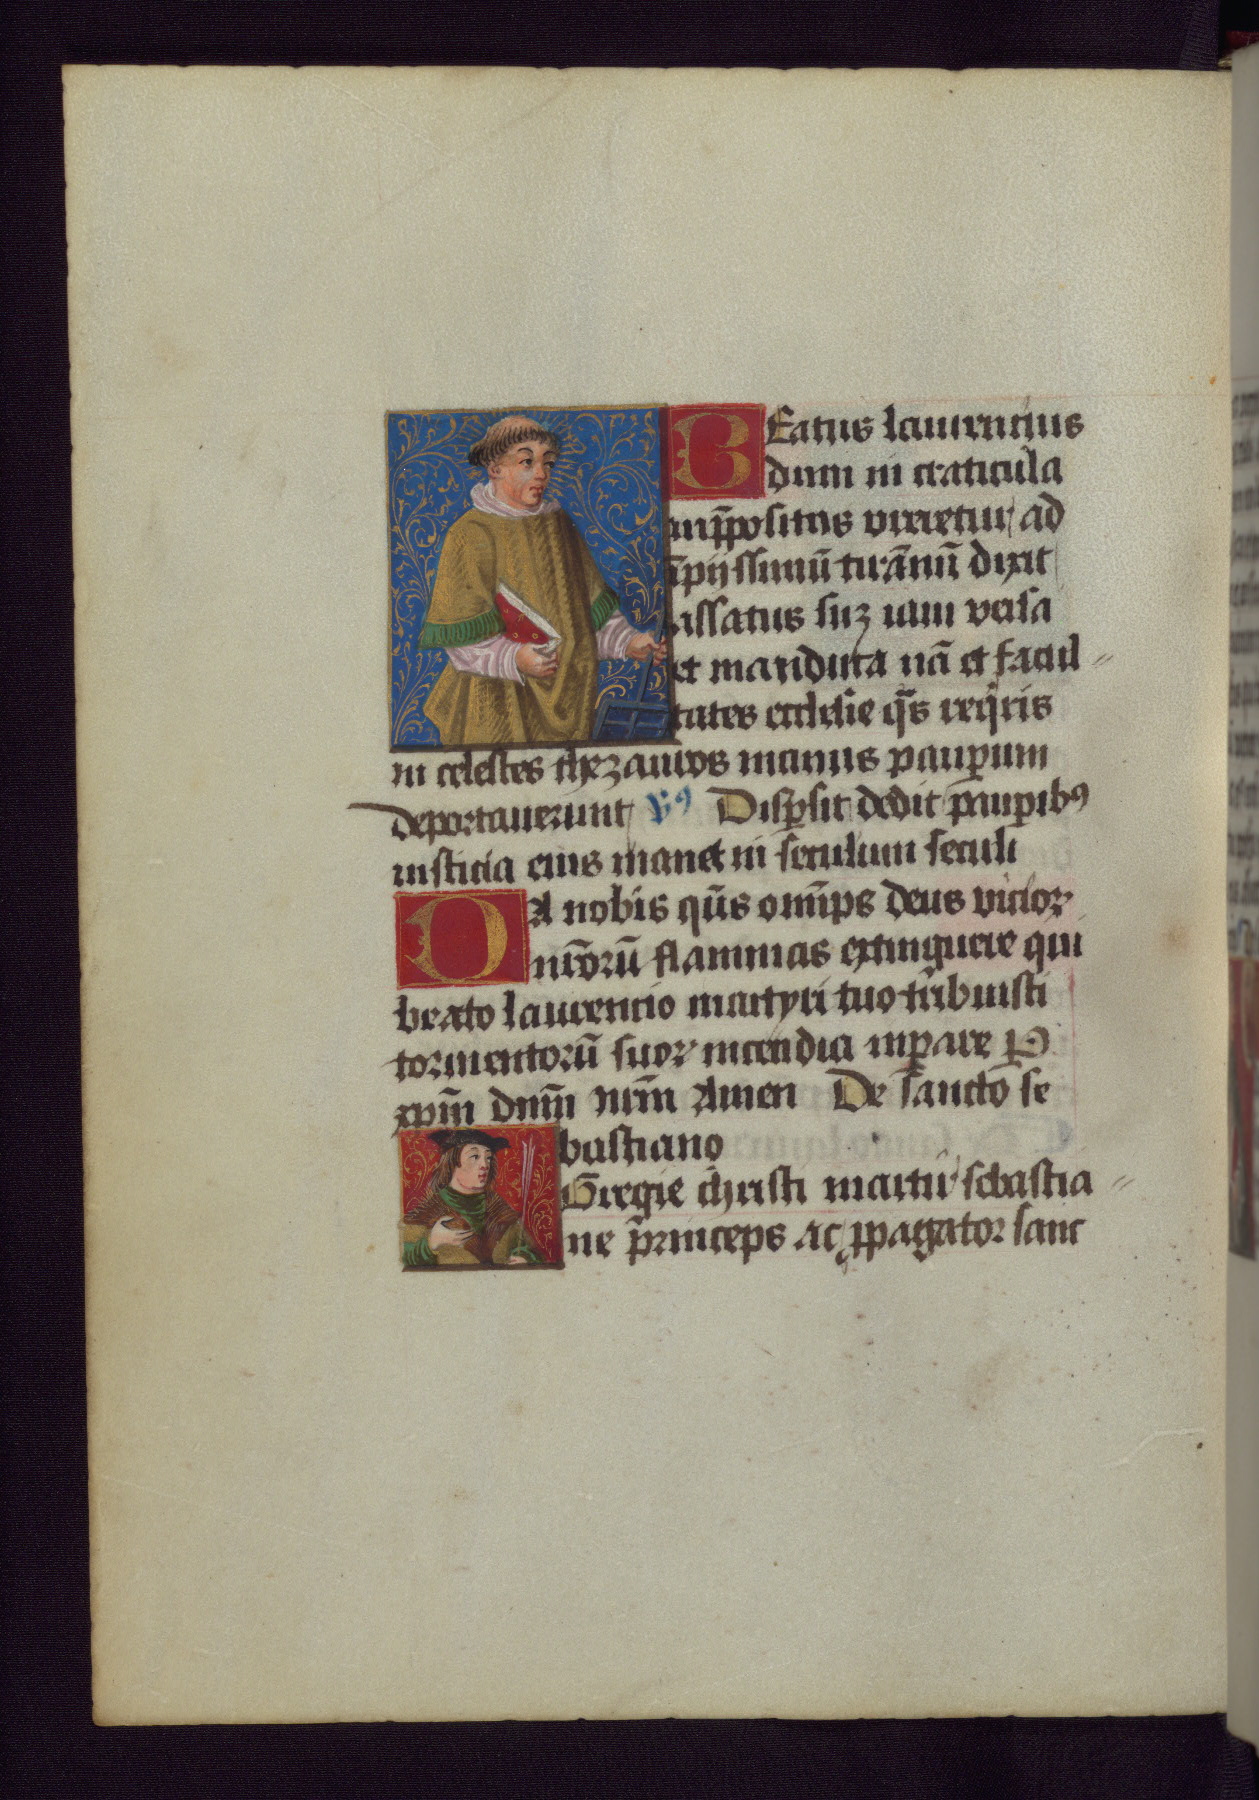 BEatus laurencius
dum in craticula
supp̄positus vreretur ad
īpijssimū tirānū dixit
assatus suȝ iam versa
et manduca nā et facul⸗
tates ecclesie q̄s reqͥris
in celestes thezauros manus paup̱um
deportauerunt v̉ꝰ Disp̱sit dedit paup̱ibꝰ
iusticia eius manet in seculum seculi
DA nobis qūs om̄ps deus vicioꝝ
nr̄orū flammas extinguere qui
beato laurencio martyri tuo tribuisti
tormentorū suoꝝ incendia sup̱are P
xpm̄ dnm̄ nrm̄ Amen De sancto se
bastiano
EGregie christi martir sebastia⸗
ne princeps ac ꝓpagator sanc